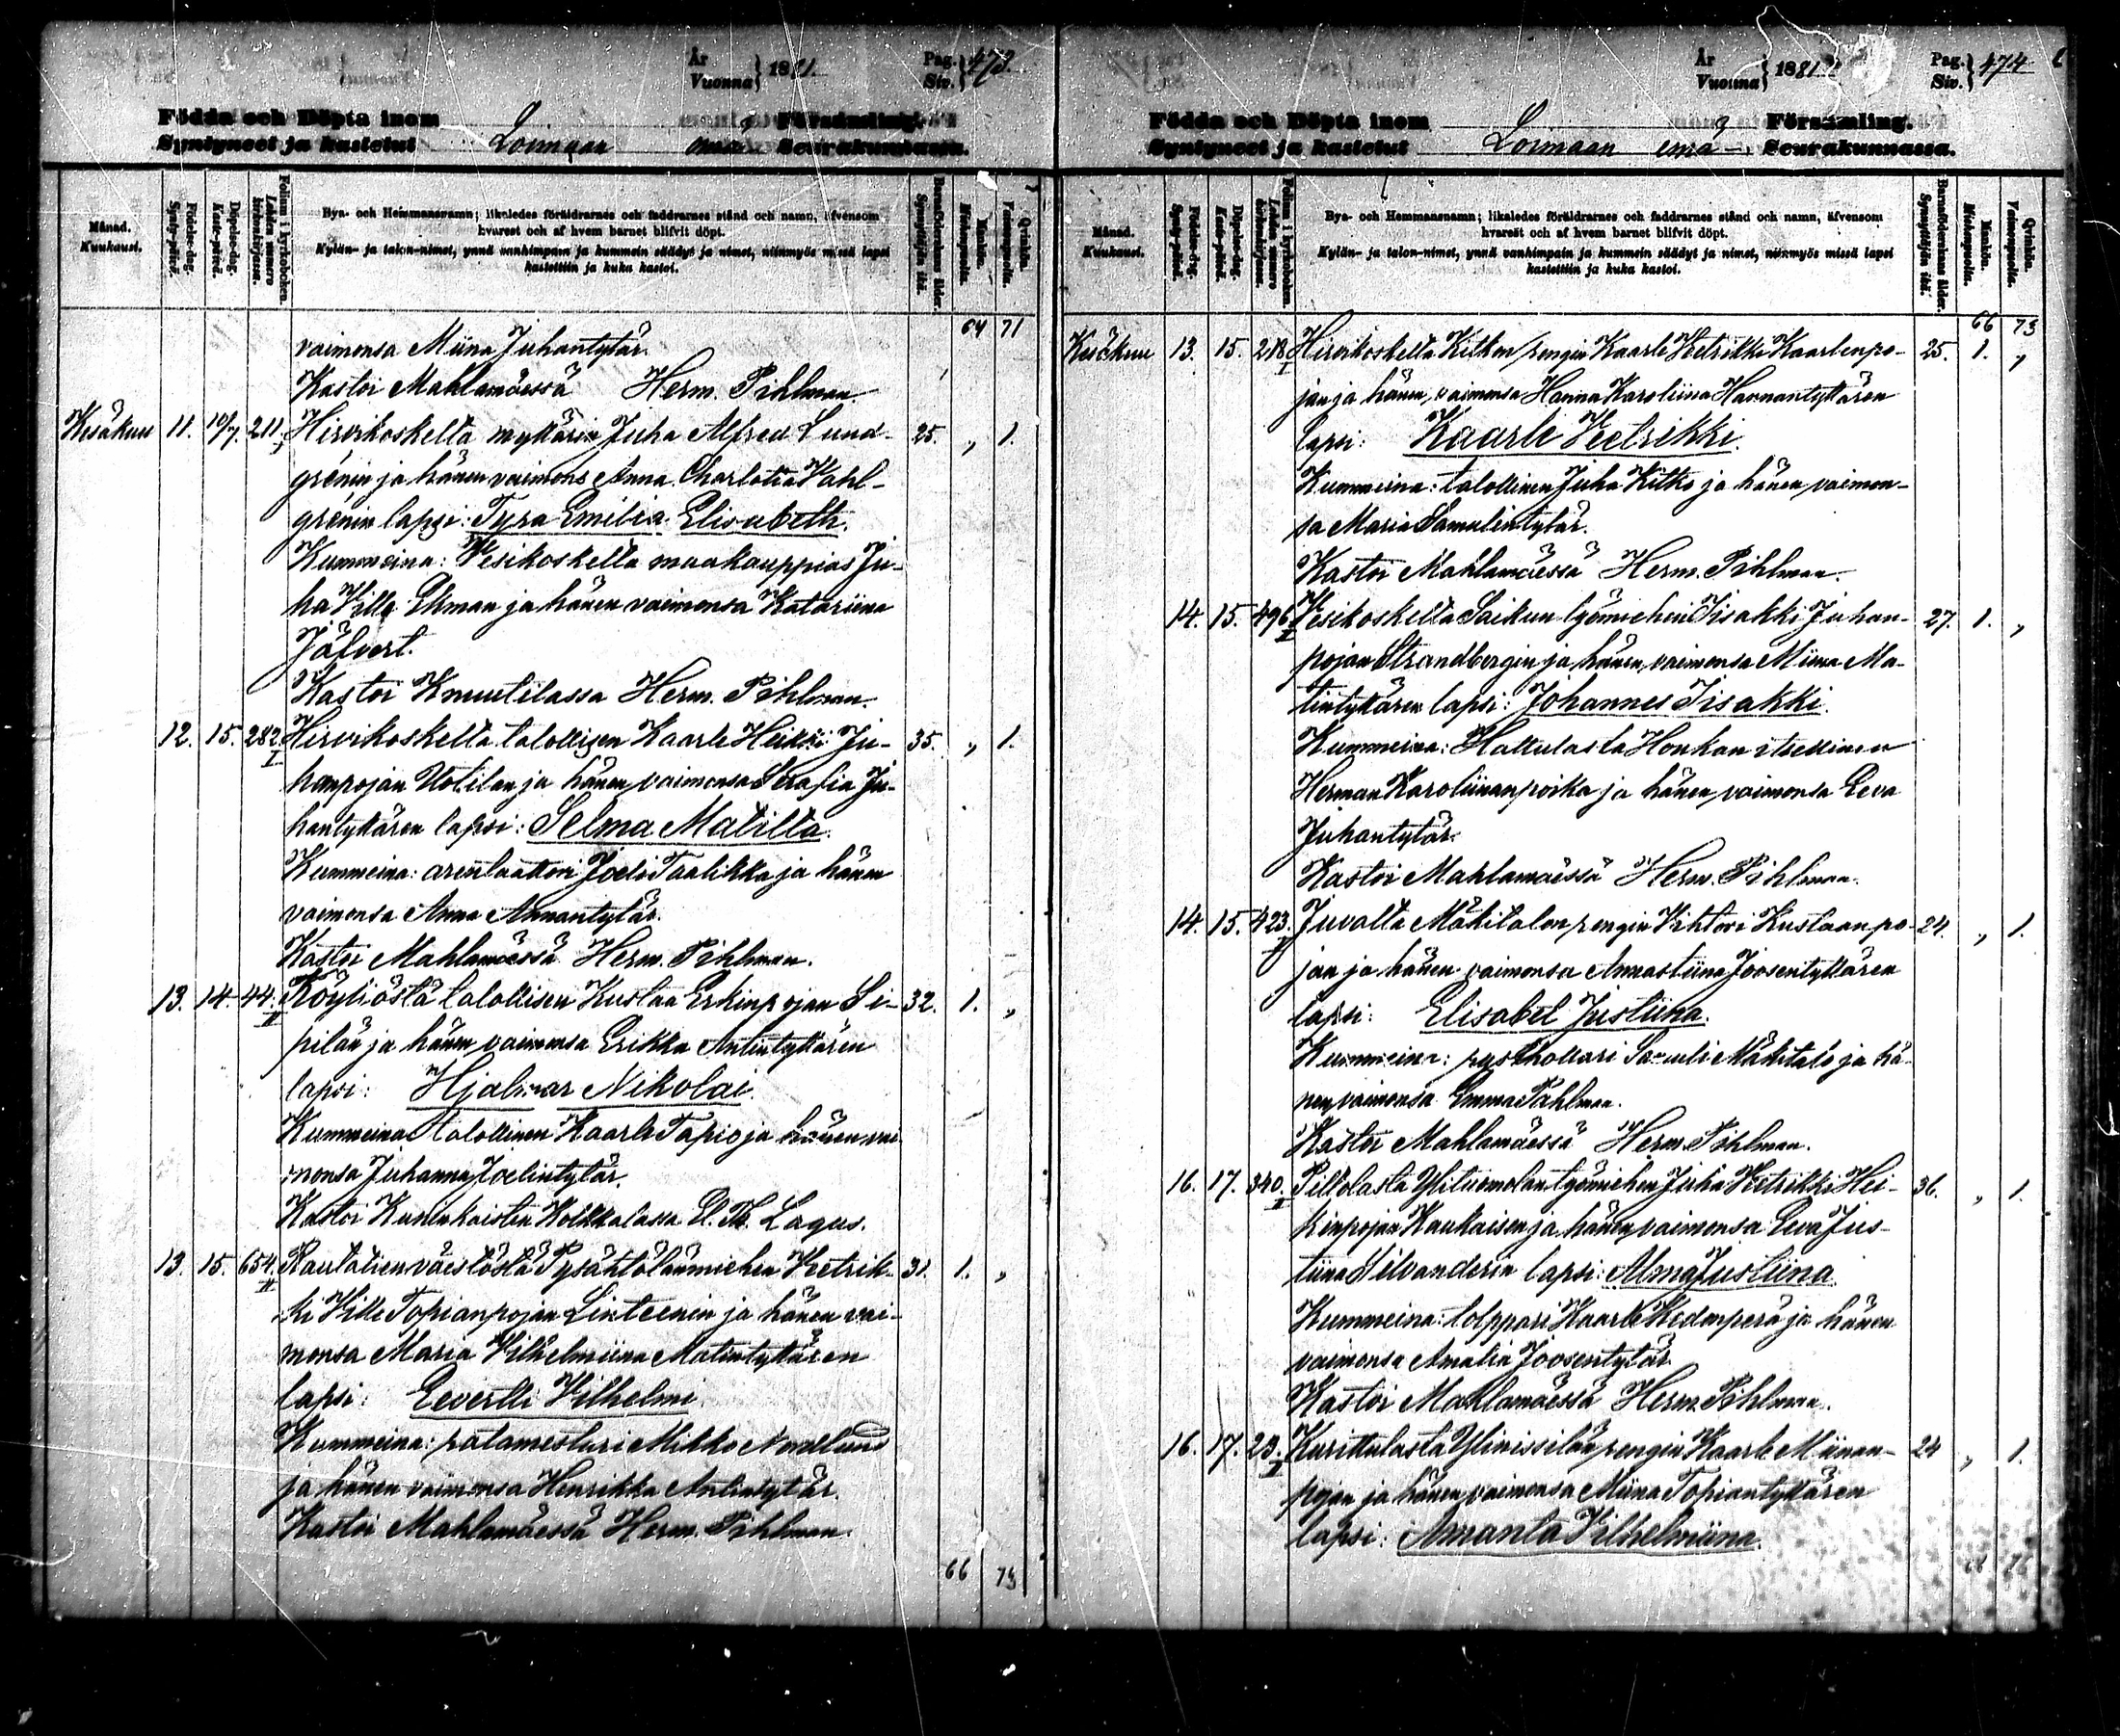 År
Vuonna } 1881.
Pag.
Siv. } 473.
Födda och Döpta inom
Syntyneet ja kastetut Loimaan emä- Församling.
Seurakunnassa.
Månad.
Kuukausi.
Födelse-dag.
Synty-päivä.
Döpelse-dag.
Kaste-päivä.
Folium i kyrkoboken.
Lehden numero kirkonkirjassa.
Bya- och Hemmansnamn; likaledes föräldrarnes och faddrarnes stånd och namn, äfvensom
hvarest och af hvem barnet blifvit döpt.
Kylän- ja talon-nimet, ynnä vanhimpain ja kummein säädyt ja nimet, niinmyös missä lapsi
kastettiin ja kuka kastoi.
Barnaföderskans ålder.
Synnyttäjän ikä.
Mankön.
Miehenpuolia.
Qvinkön.
Vaimonpuolia.
64 71
vaimonsa Miina Juhantytär.
Kastoi Mahlamäessä Herm. Pihlman.
Kesäkuu 11. 10/7. 211. I Hirvikoskelta mylläriin Juha Alfred Lund- 25. „ 1.
grénin ja hänen vaimons Anna Charlotta Wahl-
grénin lapsi: Tyra Emilia Elisabeth.
Kummeina: Vesikoskelta maakauppias Ju-
ha Ville Ekman ja hänen vaimonsa Katariina
Jäfvert.
Kastoi Knuutilassa Herm. Pihlman.
12. 15. 282. I Hirvikoskelta talollisen Kaarle Heikki Ju- 35. „ 1.
hanpojan Uotilan ja hänen vaimonsa Serafia Ju-
hantyttären lapsi: Selma Matilta.
Kummeina: arentaattori Joeli Taalikka ja hänen
vaimonsa Anna Annantytär.
Kastoi Mahlamäessä Herm. Pihlman.
13. 14. 44. II Köyliöstä talollisen Kustaa Erkinpojan Si- 32. 1. „
pilän ja hänen vaimonsa Erikka Antintyttären
lapsi: Hjalmar Nikolai.
Kummeina talollinen Kaarle Tapio ja hänen vai
monsa Juhanna Joelintytär.
Kastoi Kolkkalassa Lagus.
13. 15. 654. II väestöstä Keetrik- 31. 1. „
ki Ville Topianpojan Linteenin ja hänen vai-
monsa Maria Vilhelmiina Matintyttären
lapsi: Eevertti Vilhelmi.
Kummeina: ratamestari Mikko Nordlund
ja hänen vaimonsa Henrikka Antintytär.
Kastoi Mahlamäessä Herm. Pihlman.
66 73
År
Vuonna } 1881
Pag.
Siv. } 474
Födda och Döpta inom
Syntyneet ja kastetut Loimaan emä- Församling.
Seurakunnassa.
Månad.
Kuukausi.
Födelse-dag.
Synty-päivä.
Döpelse-dag.
Kaste-päivä.
Folium i kyrkoboken.
Lehden numero kirkonkirjassa.
Bya- och Hemmansnamn; likaledes föräldrarnes och faddrarnes stånd och namn, äfvensom
hvarest och af hvem barnet blifvit döpt.
Kylän- ja talon-nimet, ynnä vanhimpain ja kummein säädyt ja nimet, niinmyös missä lapsi
kastettiin ja kuka kastoi.
Barnaföderskans ålder.
Synnyttäjän ikä.
Mankön.
Miehenpuolia.
Qvinkön.
Vaimonpuolia.
66 73
Kesäkuu 13. 15. 218. I Hirvikoskelta Kitkon rengin Kaarle Veetrikki Kaarlenpo- 25. 1. „
jan ja hänen vaimonsa Hanna Karoliina Hannantyttären
lapsi: Kaarle Veetrikki.
Kummeina: talollinen Juha Kitko ja hänen vaimon-
sa Maria Samulintytär.
Kastoi Mahlamäessä Herm. Pihlman.
14. 15. 496. II Vesikoskelta Saikun työmiehen Iisakki Juhan- 27. 1. „
pojan Strandbergin ja hänen vaimonsa Miina Ma-
tintyttären lapsi: Johannes Iisakki.
Kummeina: Haltulasta Honkan itsellinen
Herman Karoliinanpoika ja hänen vaimonsa Eeva
Juhantytär.
Kastoi Mahlamäessä Herm. Pihlman.
14. 15. 423. II Juvalta Mäkitalon rengin Vihtori Kustaanpo- 24. „ 1.
jan ja hänen vaimonsa Annastiina Joosentyttären
lapsi: Elisabet Justiina.
Kummeina: rusthollari Samuli Mäkitalo ja hä-
nen vaimonsa Emma Pahlman.
Kastoi Mahlamäessä Herm. Pihlman.
16. 17. 340. II Piltolasta Ylituomolan työmiehen Juha Veetrikki Hei- 36. „ 1.
kinpojan Kaukaisen ja hänen vaimonsa Eeva Jus-
tiina Silvanderin lapsi: Alma Justiina.
Kummeina: torppari Kaarle Kedonperä ja hänen
vaimonsa Amalia Joosentytär.
Kastoi Mahlamäessä Herm. Pihlman.
16. 17. 23. I Kurittulasta Ylinissilän rengin Kaarle Miinan- 24 „ 1.
pojan ja hänen vaimonsa Miina Topiantyttären
lapsi: Amanta Vilhelmiina.